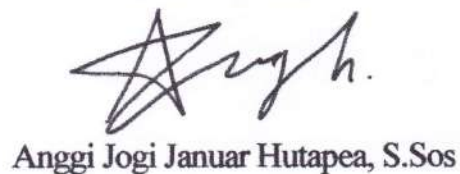 Anggi Jogi Januar Hutapea, S.Sos